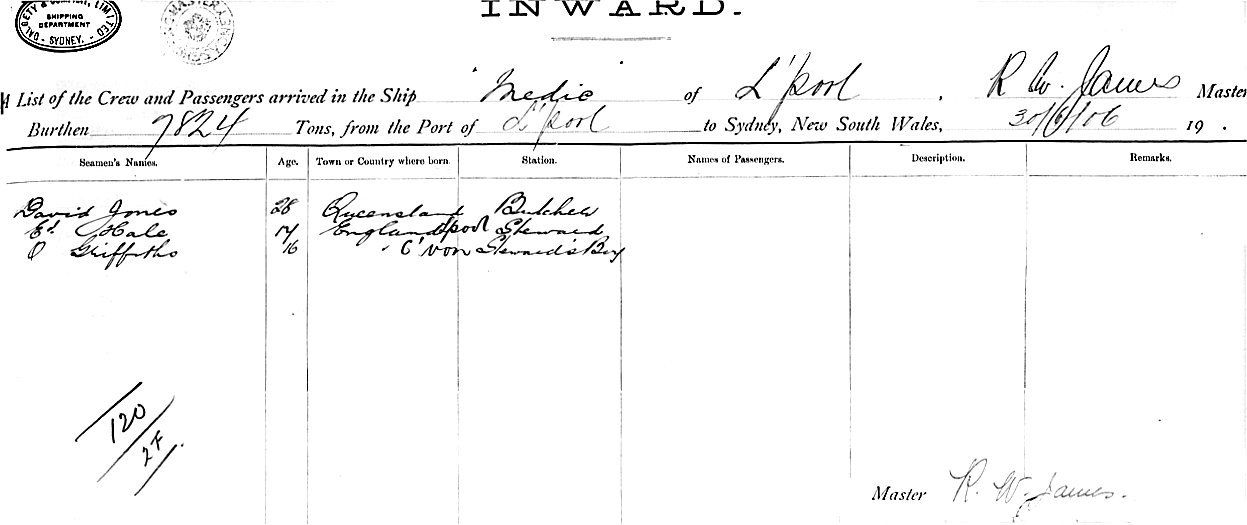 INWARD.
DALGETY & COMPANY, LIMITED
SHIPPING
DEPARTMENT
- SYDNEY. -
List of the Crew and Passengers arrived in the Ship "Medic" of L'pool, R W. James Master
Burthen 7824 Tons, from the Port of L'pool to Sydney, New South Wales, 30/6/06 19 .
Seamen's Names. Age. Town or Country where born. Station. Names of Passengers. Description. Remarks.
David Jones 28 Queensland Butcher
Ed. Hale England L'pool Steward
O Griffiths 16 " C'von Steward's Boy
120
27
Master R. W. James.